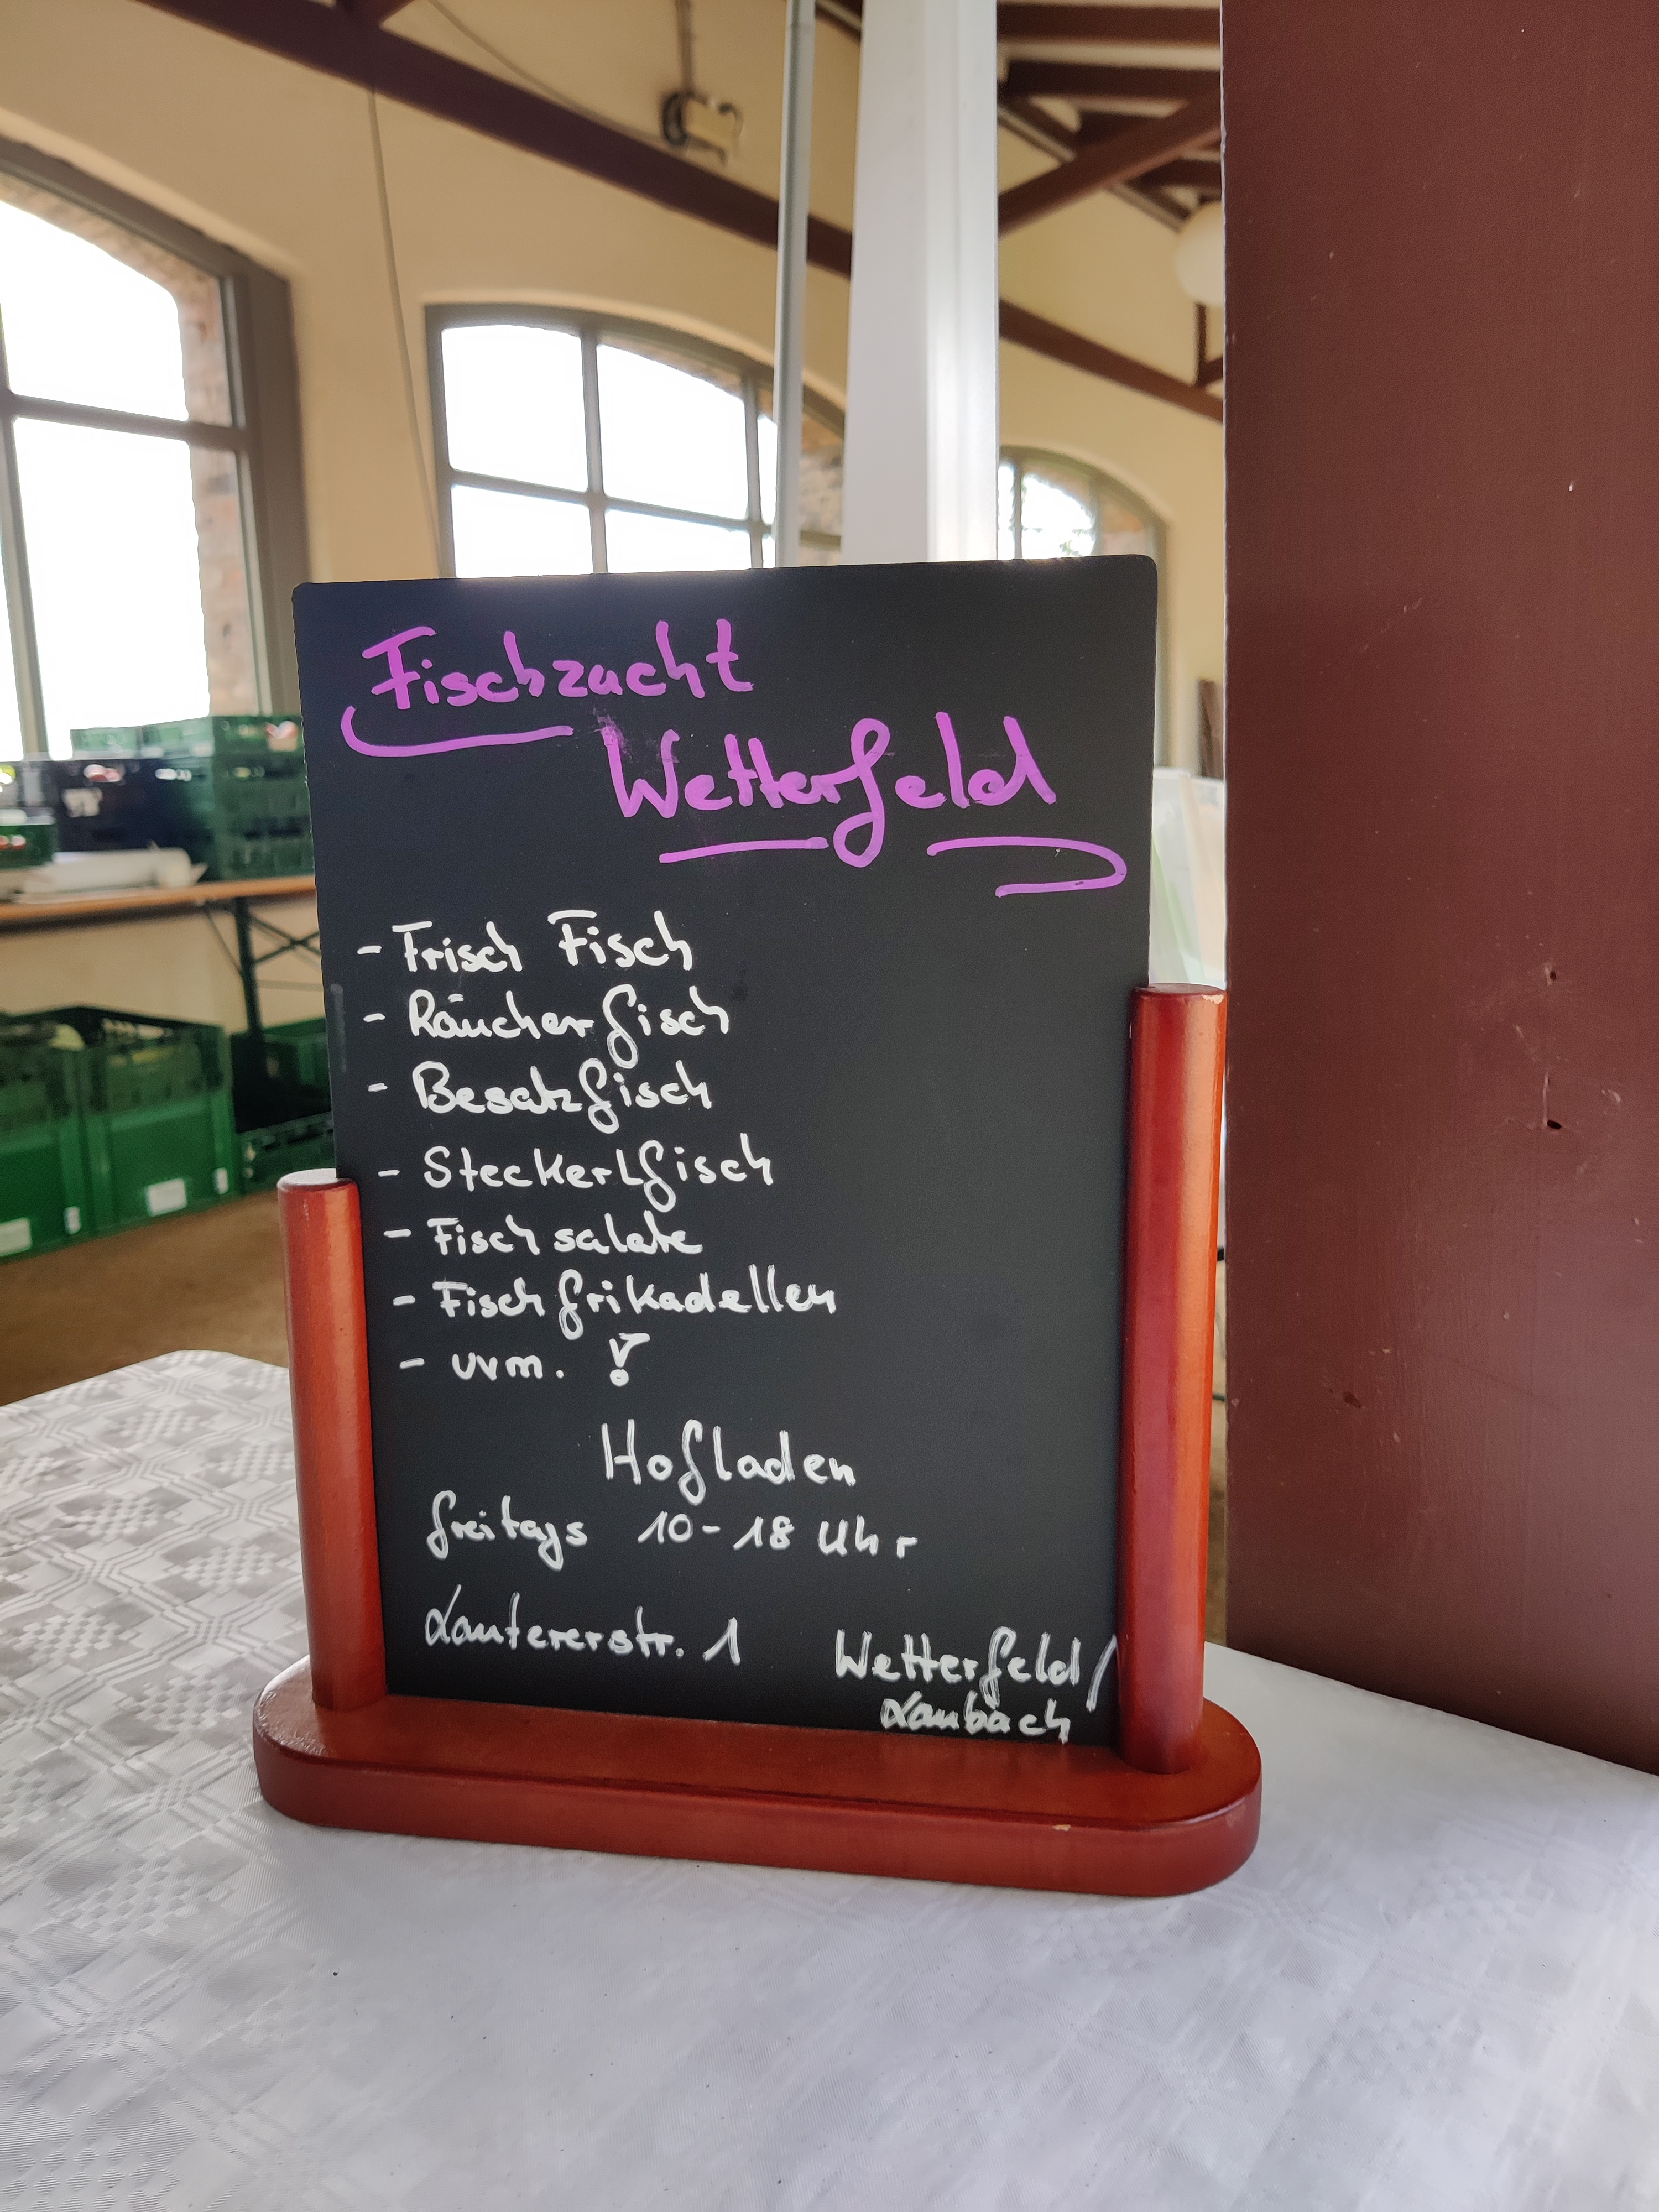 Fischzucht
Wetterfeld
- Frisch Fisch
- Räucherfisch
- Besatzfisch
- Steckerlfisch
- Fischsalate
- Fischfrikadellen
- uvm. !
Hofladen
freitags 10-18 Uhr
Lautererstr. 1
Wetterfeld/
Laubach